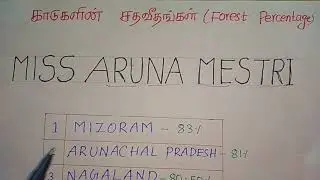 காடுகளின் சதவீதங்கள் (Forest Percentage)
MISS ARUNA MESTRI
1 MIZORAM - 83%
ARUNACHAL PRADESH - 81%
3 NAGALAND - 80